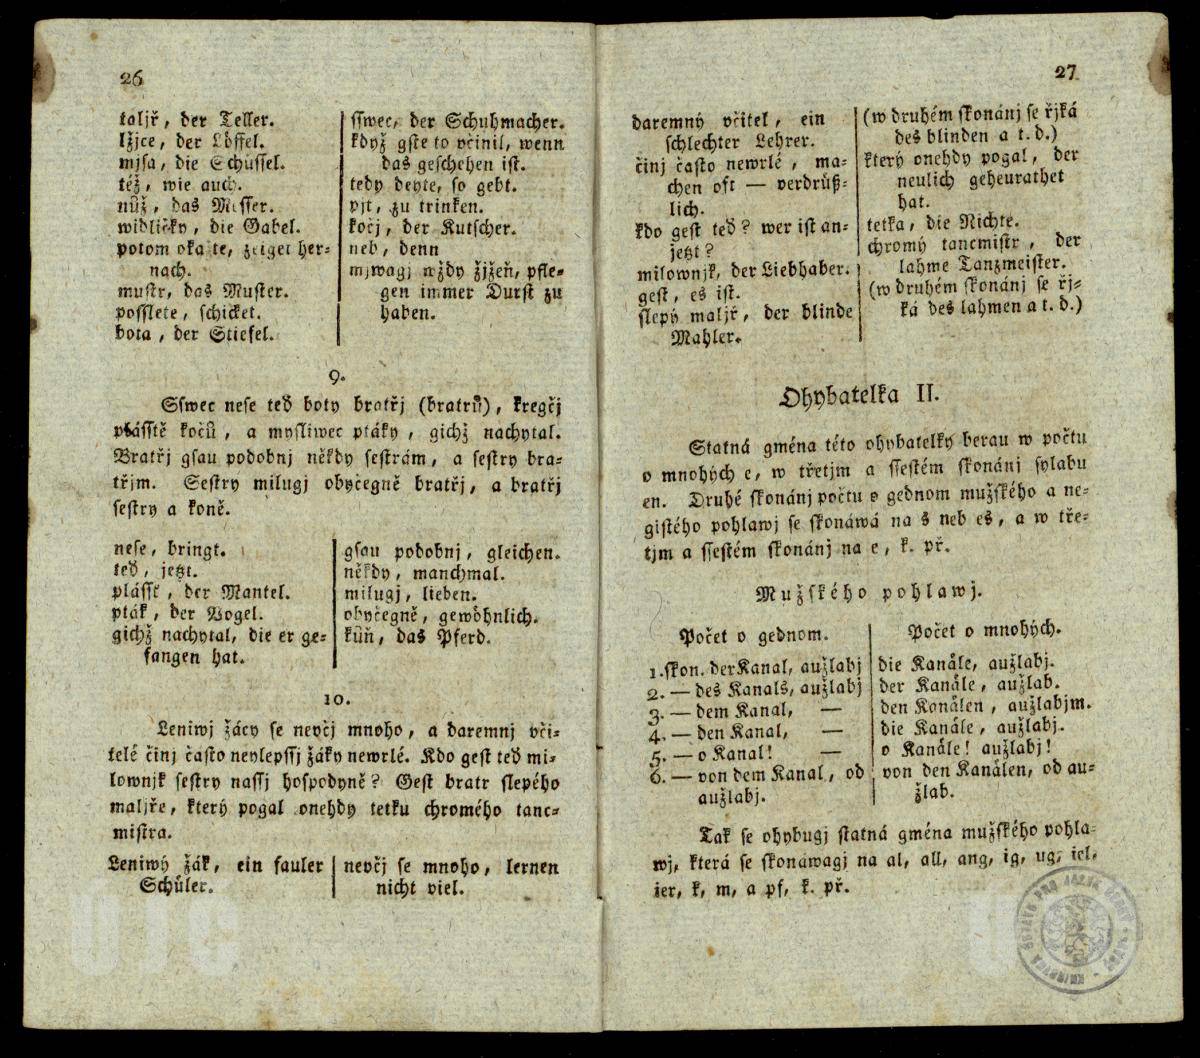 26
taljř, der Teller.
lžjce, der Löffel.
mjsa, die Schüssel.
též, wie auch.
nůž, das Messer.
widličky, die Gabel.
potom okažte, zeiget her-
nach.
mustr, das Muster.
possete, schicket.
bota, der Stiefel.
sswec, der Schuhmacher.
když gste to včinil, wenn
das geschehen ist.
tedy deyte, so gebt.
pjt, zu trinken.
kočj, der Kutscher.
neb, denn
mjwagj wždy žjžeň, pfle-
gen immer Durst zu
haben.
9.
Sswec nese teď boty bratřj (bratrů), kregčj
plásstě kočů, a mysliwec ptáky, gichž nachytal.
Bratřj gsau podobnj někdy sestrám, a sestry bra-
třjm. Sestry milugj obyčegně bratřj, a bratřj
sestry a koně.
nese, bringt.
teď, jetzt.
plásst, der Mantel.
pták, der Vogel.
gichž nachytal, die er ge-
fangen hat.
gsau podobnj, gleichen.
někdy, manchmal.
milugj, lieben.
obyčegně, gewöhnlich.
kůň, das Pferd.
10.
Leniwj žácy se nevčj mnoho, a daremnj vči-
telé činj často neylepssj žáky newrlé. Kdo gest teď mi-
lownjk sestry nassj hospodyně? Gest bratr slepého
maljře, který pogal onehdy tetku chromého tanc-
mistra.
Leniwý žák, ein fauler
Schüler.
nevčj se mnoho, lernen
nicht viel.
27
daremný včitel, ein
schlechter Lehrer.
činj často newrlé, ma-
chen oft — verdrüß-
lich.
kdo gest teď? wer ist an-
jetzt?
milownjk, der Liebhaber.
gest, es ist.
slepý maljř, der blinde
Mahler.
(w druhém skonánj se řjká
des blinden a t. d.)
který onehdy pogal, der
neulich geheurathet
hat.
tetka, die Nichte.
chromý tancmistr, der
lahme Tanzmeister.
(w druhém skonánj se řj-
ká des lahmen a t. d.)
Ohybatelka II.
Statná gména této ohybatelky berau w počtu
o mnohých e, w třetjm a ssestém skonánj sylabu
en. Druhé skonánj počtu o gednom mužského a ne-
gistého pohlawj se skonáwá na s neb es, a w tře-
tjm a ssestém skonánj na e, k. př.
Mužského pohlawj.
Počet o gednom.
1. skon. der Kanal, aužlabj
2. — des Kanals, aužlabj
3. — dem Kanal, —
4. — den Kanal, —
5. — o Kanal! —
6. — von dem Kanal, od
aužlabj.
Počet o mnohých.
die Kanäle, aužlabj.
der Kanäle, aužlab.
den Kanälen, aužlabjm.
die Kanäle, aužlabj.
o Kanäle! aužlabj!
von den Kanälen, od au-
žlab.
Tak se ohybugj statná gména mužského pohla-
wj, která se skonáwagj na al, all, ang, ig, ug, iel,
ier, k, m, a pf, k. př.